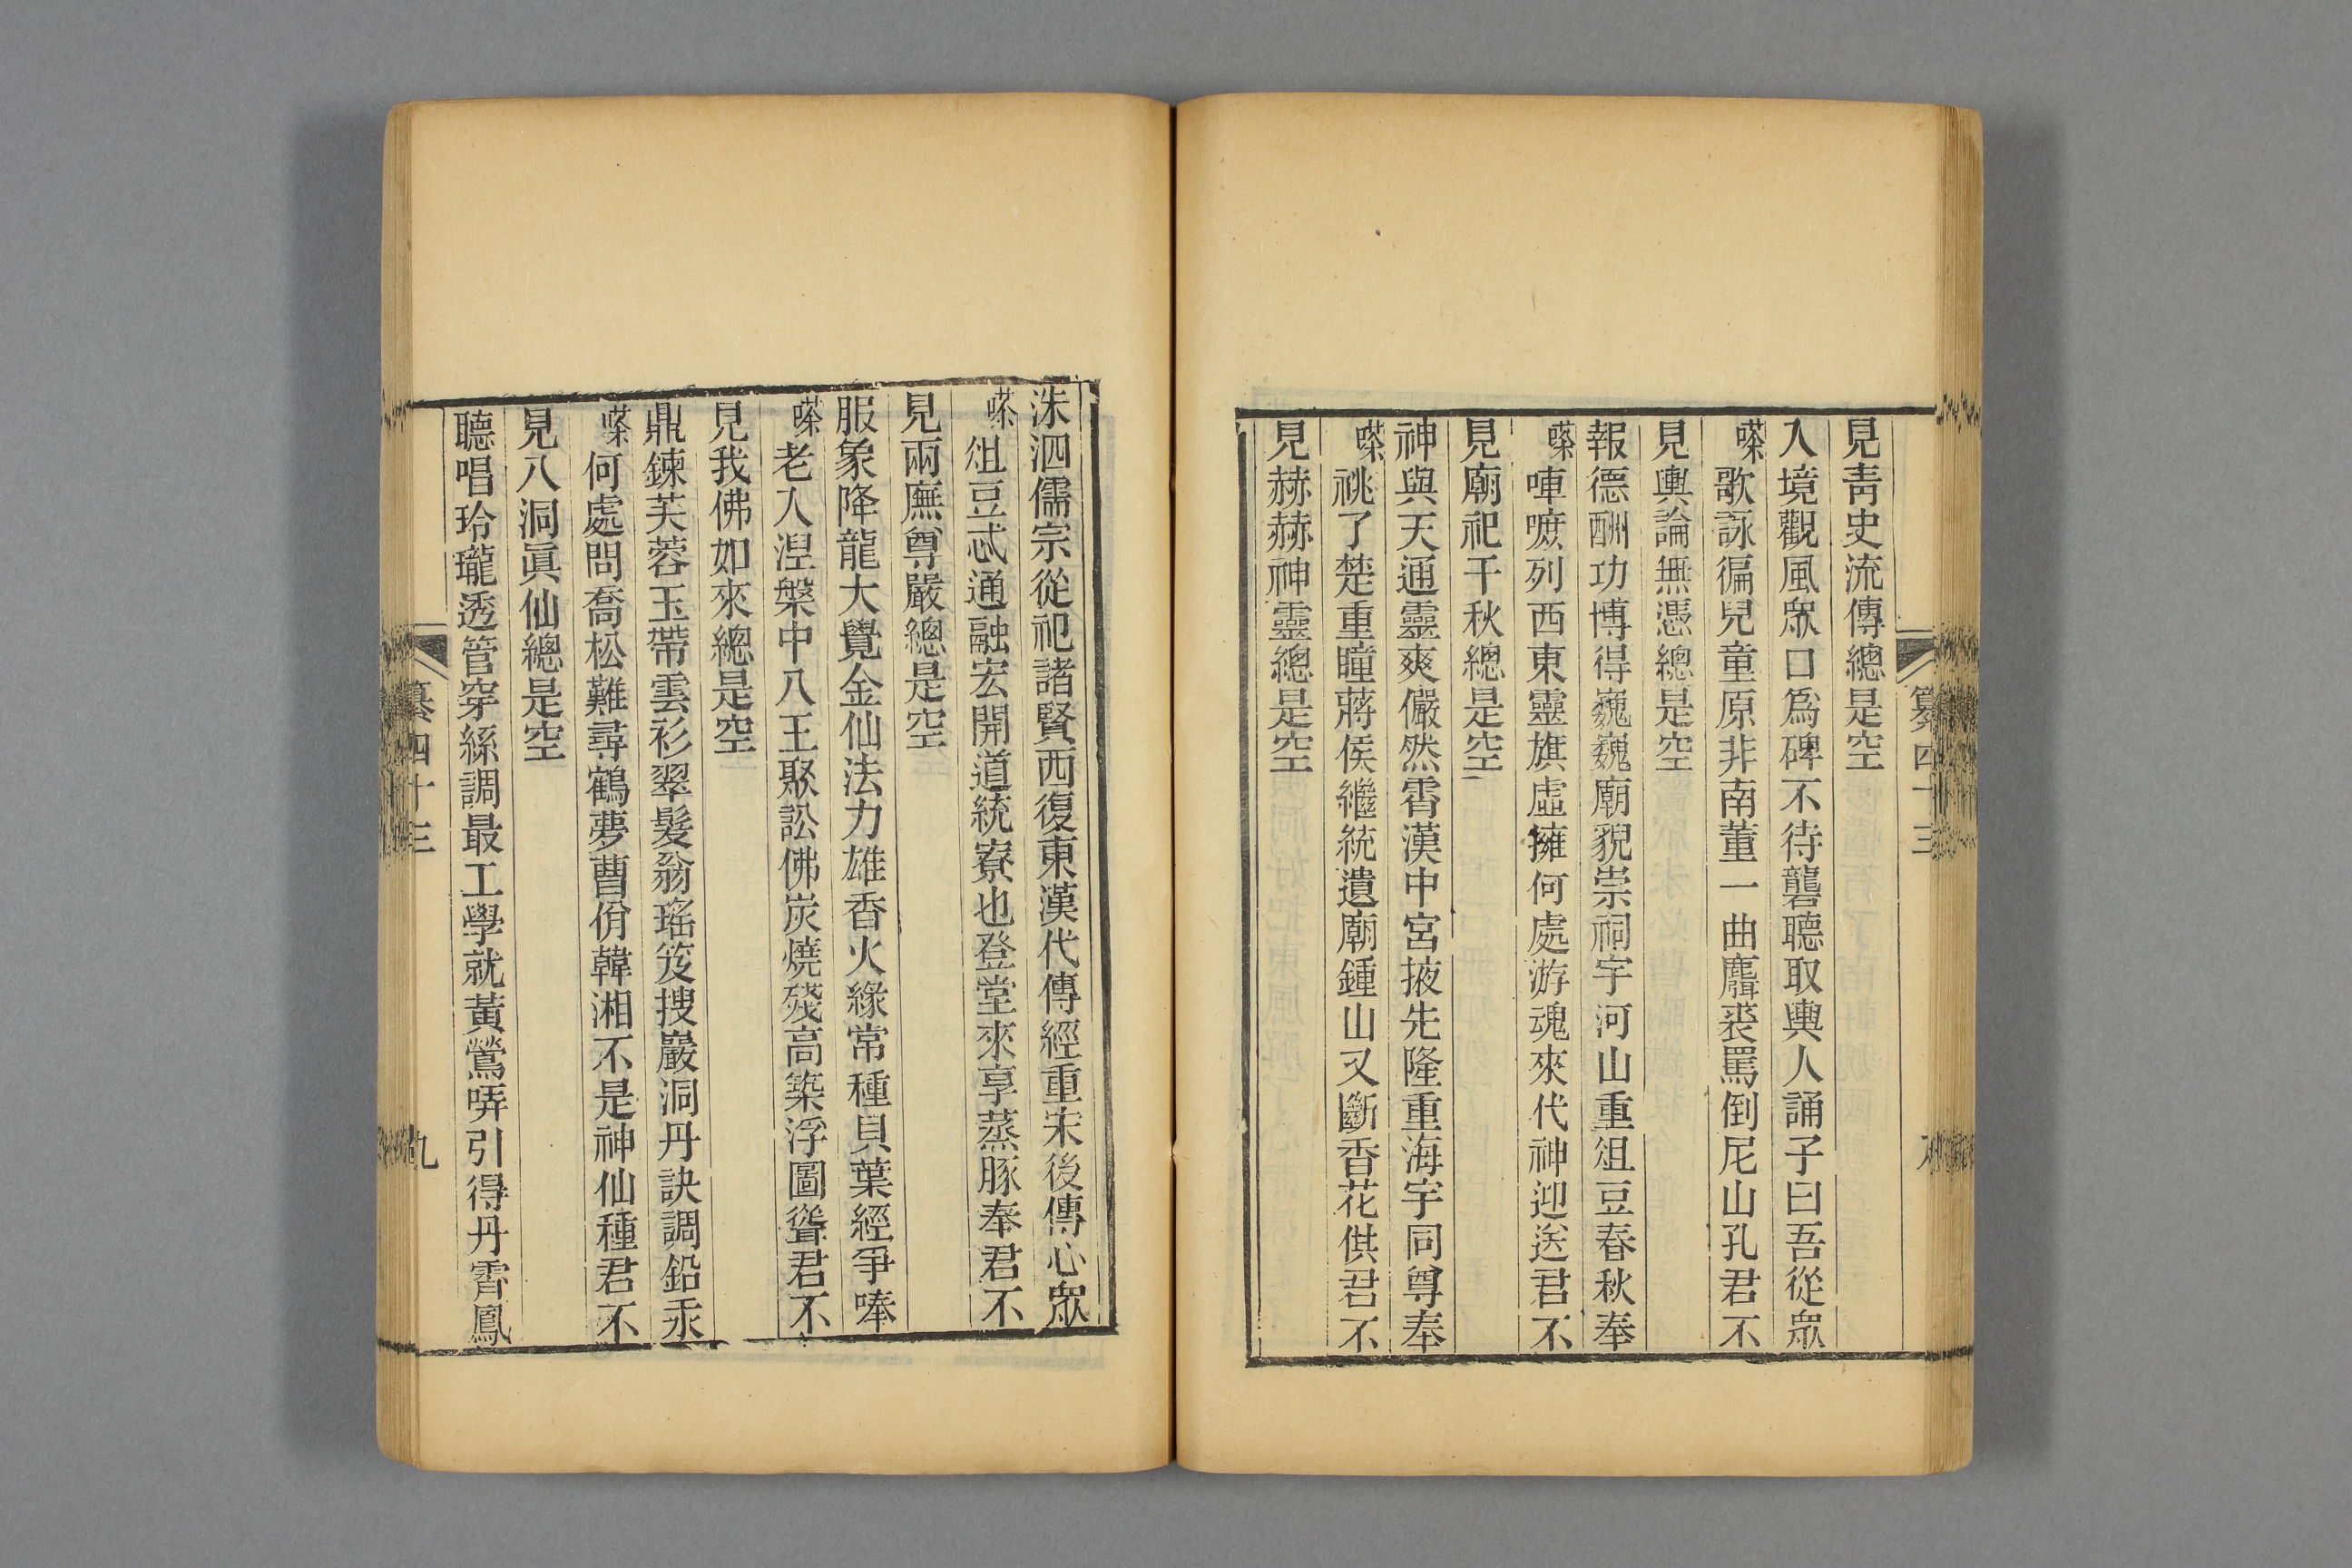 纂四十三
見靑史流傳總是空
入境觀風眾口爲碑不待礱聽取輿人誦子曰吾從眾
嗏歌詠徧兒童原非南董一曲麛裘罵倒尼山孔君不
見輿論無憑總是空
報德酬功博得巍巍廟貌崇祠宇河山重俎豆春秋奉
嗏唓嗻列西東靈旗虛擁何處游魂來代神迎送君不
見廟祀千秋總是空
神與天通靈爽儼然霄漢中宮掖先隆重海宇同尊奉
嗏祧了楚重瞳蔣侯繼統遺廟鍾山又斷香花供君不
見赫赫神靈總是空
洙泗儒宗從祀諸賢西復東漢代傳經重宋後傳心眾
嗏俎豆忒通融宏開道統寮也登堂來享蒸豚奉君不
見兩廡尊嚴總是空
服象降龍大覺金仙法力雄香火緣常種貝葉經爭唪
嗏老人涅槃中八王聚訟佛炭燒殘高築浮圖聳君不
見我佛如來總是空
鼎鍊芙蓉玉帶雲衫翠髮翁瑤笈搜巖洞丹訣調鉛汞
嗏何處問喬松難尋鶴夢曹佾韓湘不是神仙種君不
見八洞眞仙總是空
聽唱玲瓏透管穿絲調最工學就黃鶯哢引得丹霄鳳
纂四十三
九